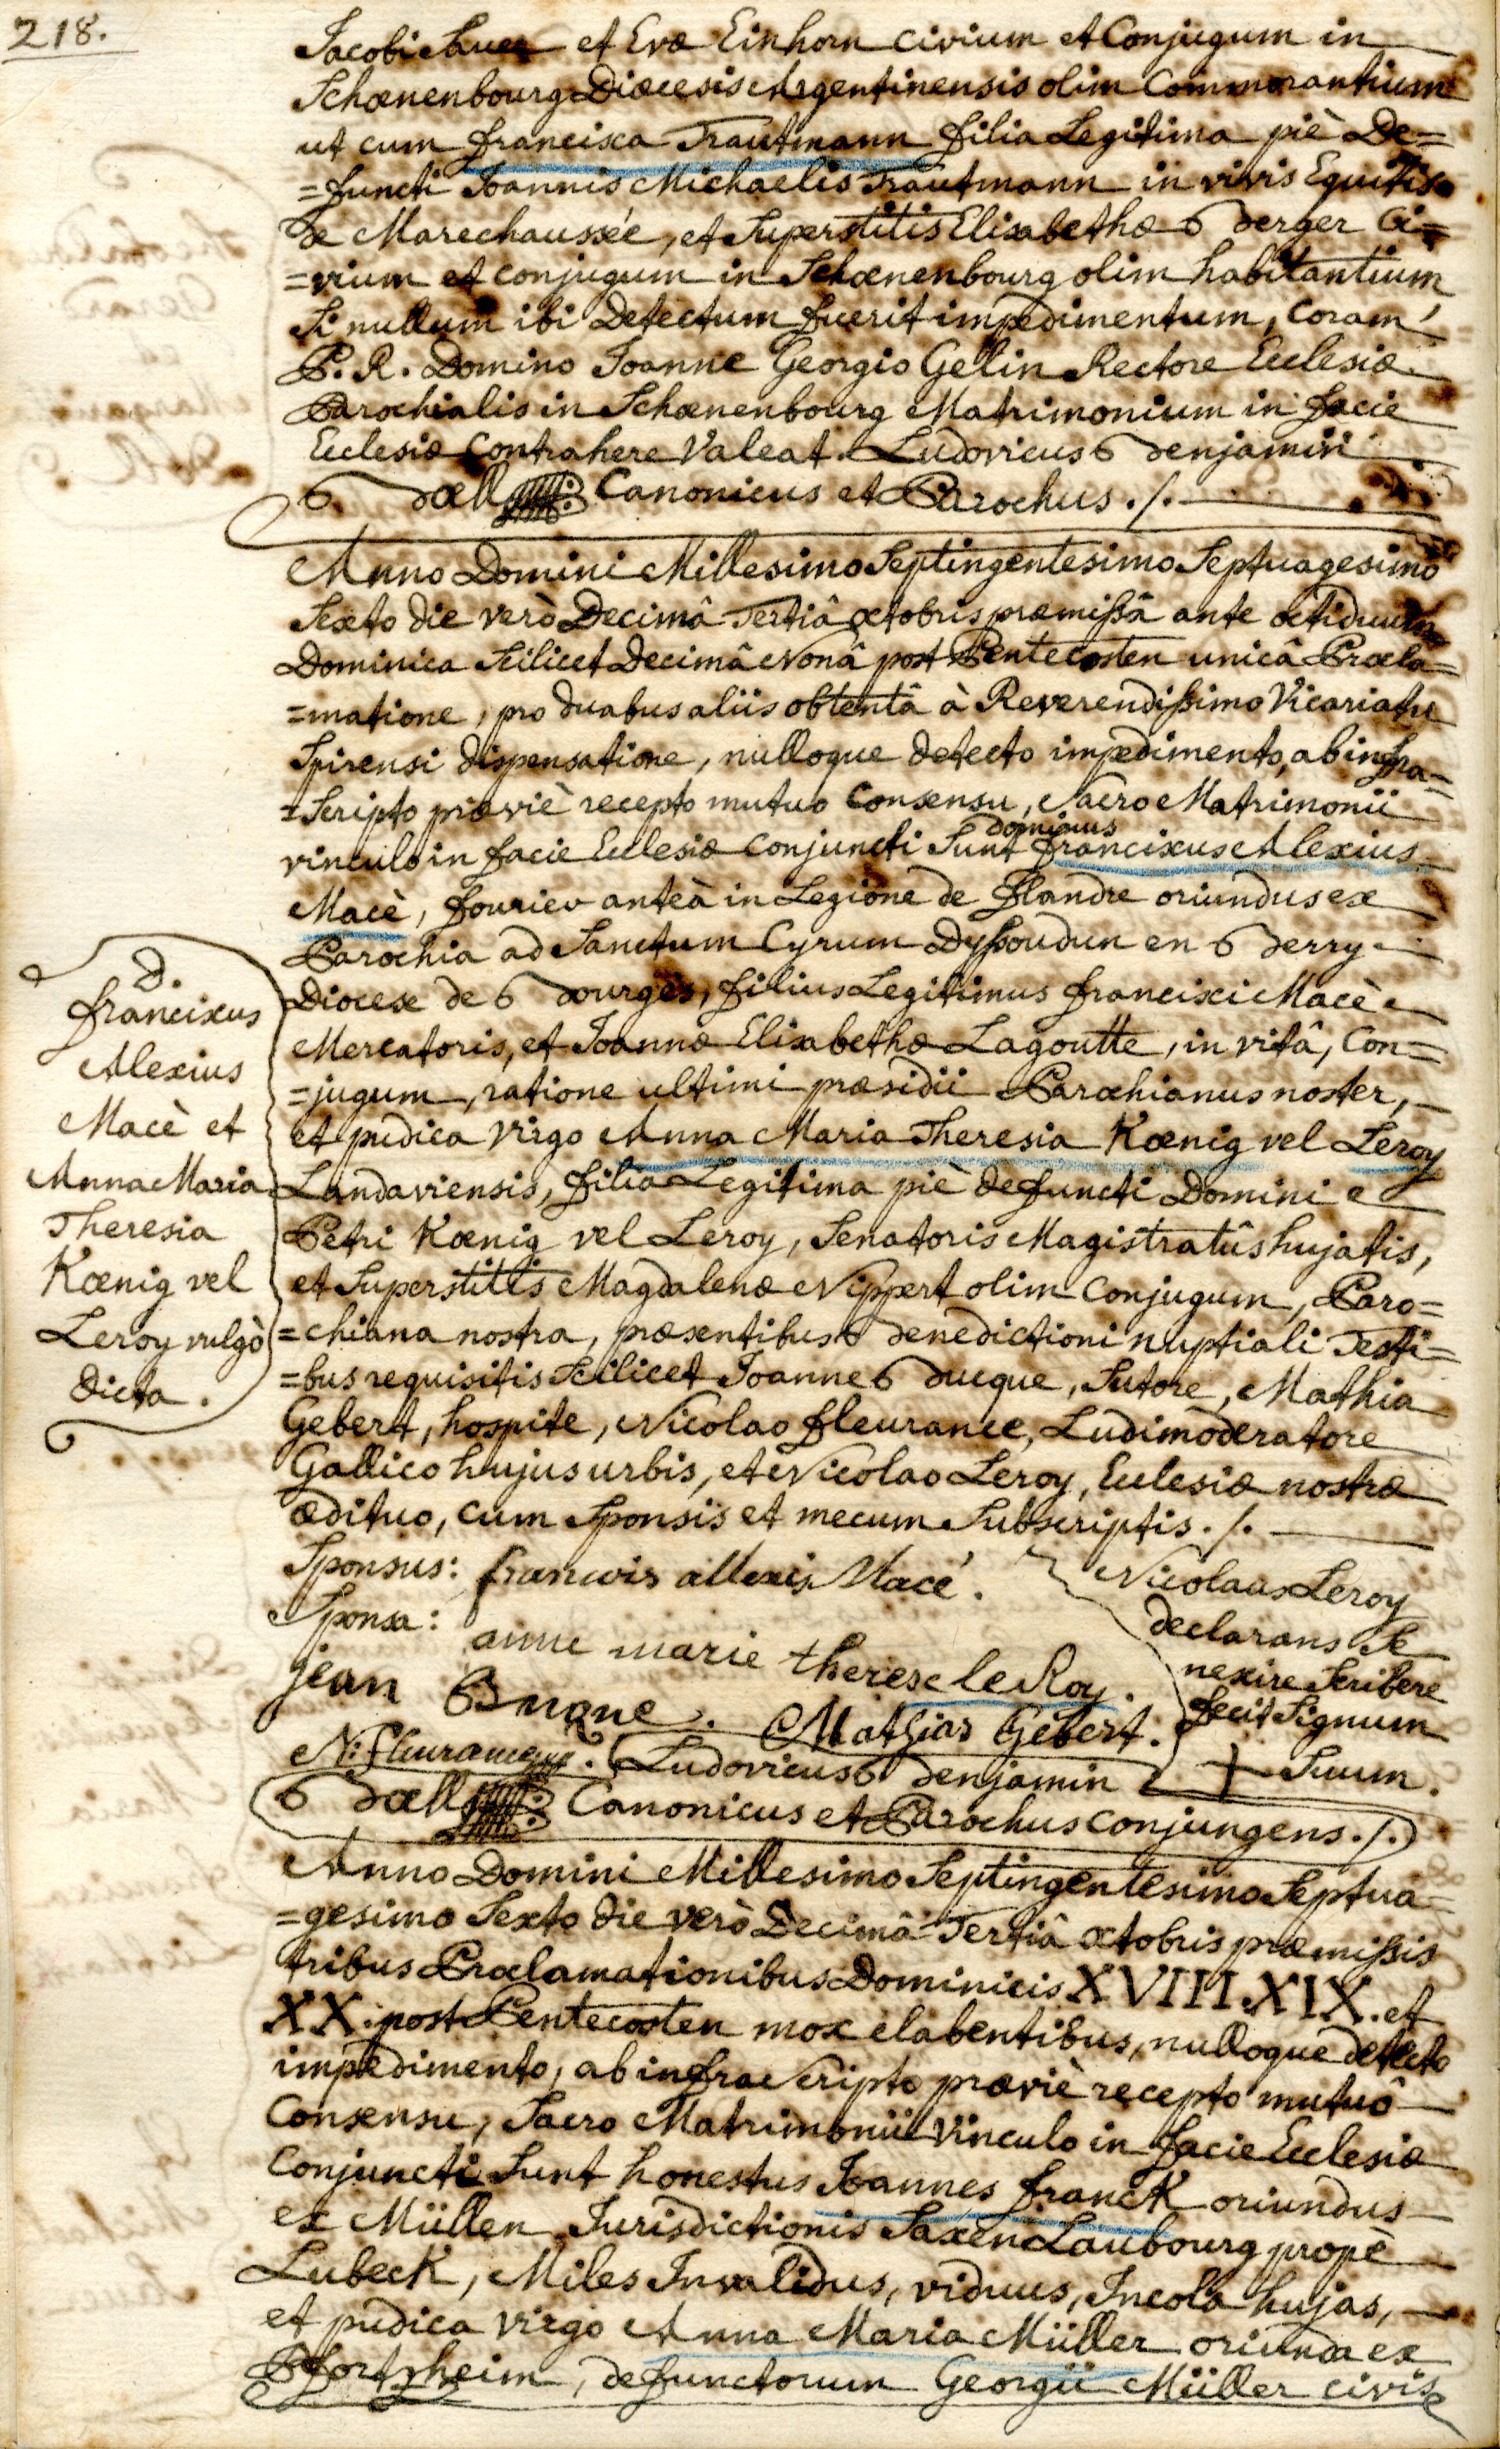 218.
Jacobi Sauer et Evæ Einhorn civium et Conjugum in
Schœnenbourg Diœcesis Argentinensis olim Commorantium
ut cum francisca Trautmann filia Legitima piè De=
=functi Joannis Michaelis Trautmann in vivis Equitis
de Marechaussée, et Superstitis Elisabethæ Berger Ci=
=vium et conjugum in Schœnenbourg olim habitantium
Si nullum ibi Detectum fuerit impedimentum, coram
P. R. Domino Joanne Georgio Gelin Rectore Ecclesiæ
Parochialis in Schœnenbourg Matrimonium in facie
Ecclesiæ Contrahere Valeat. Ludovicus Benjamin
Bœll Canonicus et Parochus ./.
Anno Domini Millesimo Septingentesimo Septuagesimo
Sexto die verò Decimâ Tertiâ octobris præmissâ ante octiduum
Dominica Scilicet Decimâ Nonâ post Pentecosten unicâ Procla=
=matione, pro duabus aliis obtentâ à Reverendissimo Vicariatu
Spirensi dispensatione, nulloque detecto impedimento, ab infra=
=Scripto præviè recepto mutuo Consensu, Sacro Matrimonii
vinculo in facie Ecclesiæ Conjuncti Sunt dominus franciscus Alexius
Macè, fourier anteà in Legione de flandre oriundus ex
Parochia ad Sanctum Cyrum Dyssoudun en Berry
Diocese de Bourges, filius Legitimus francisci Macè
Mercatoris, et Joannæ Elisabethæ Lagoutte, in vitâ, Con=
=jugum, ratione ultimi præsidii Parochianus noster,
et pudica virgo Anna Maria Theresia Kœnig vel Leroy
Landaviensis, filia Legitima piè defuncti Domini
Petri Kœnig vel Leroy, Senatoris Magistratûs hujatis,
et Superstitis Magdalenæ Nippert olim Conjugum, Paro=
=chiana nostra, præsentibus Benedictioni nuptiali Testi=
=bus requisitis Scilicet Joanne Bucque, Sutore, Mathia
Gebert, hospite, Nicolao fleurance, Ludimoderatore
Gallico hujus urbis, et Nicolao Leroy, Ecclesiæ nostræ
ædituo, cum Sponsis et mecum Subscriptis ./.
D.
franciscus
Alexius
Macè et
Anna Maria
Theresia
Kœnig vel
Leroy vulgò
dicta.
Sponsus: francois allexis Macé.
Sponsa: anne marie therese le Roy.
jean Buque. Mathias Gebert.
N: fleurance.
Nicolaus Leroy
declarans Se
nescire Scribere
fecit Signum
+ Suum.
Ludovicus Benjamin
Bœll Canonicus et Parochus conjungens ./.
Anno Domini Millesimo Septingentesimo Septua=
=gesimo Sexto die verò Decimâ Tertiâ octobris præmissis
tribus Proclamationibus Dominicis XVIII. XIX. et
XX. post Pentecosten mox elabentibus, nulloque detecto
impedimento, ab infra Scripto præviè recepto mutuô
Consensu, Sacro Matrimonii Vinculo in facie Ecclesiæ
Conjuncti Sunt honestus Joannes franck oriundus
ex Müllen Jurisdictionis Saxen Laubourg propè
Lubeck, Miles Invalidus, viduus, Incola hujas,
et pudica virgo Anna Maria Müller oriunda ex
Pfortzheim, defunctorum Georgii Müller civis